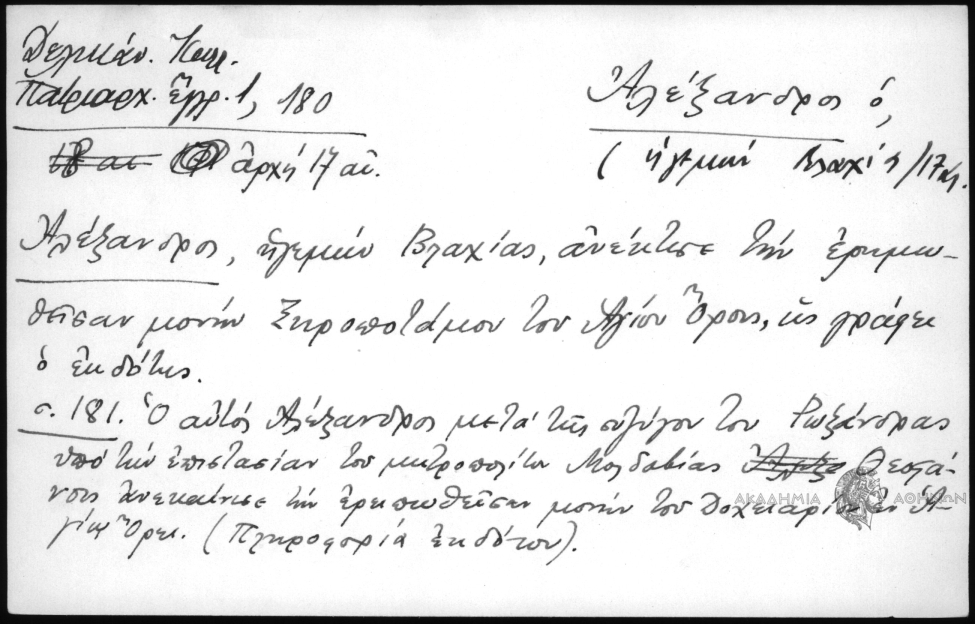 Δελικάν. Καλ.
Πατριαρχ. ἔγγρ. 1, 180
ἀρχή 17 αἰ.
Ἀλέξανδρος ὁ,
( ἡγεμών Βλαχί /17 αἰ.
Ἀλέξανδρος, ἡγεμών Βλαχίας, ἀνέκτισε τήν ἐρημω-
θεῖσαν μονήν Ξηροποτάμου τοῦ Ἁγίου Ὄρους, ὡς γράφει
ὁ ἐκδότης.
σ. 181. Ὁ αὐτός Ἀλέξανδρος μετά τῆς συζύγου του Ρωξάνδρας
ὑπό τήν ἐπιστασίαν τοῦ μητροπολίτου Μολδαβίας Θεοφά-
νους ἀνεκαίνισε τήν ἐρειπωθεῖσαν μονήν τοῦ Δοχειαρίου ἐν Ἁ-
γίῳ Ὄρει. (Πληροφορία ἐκδότου).
ΑΚΑΔΗΜΙΑ ΑΘΗΝΩΝ